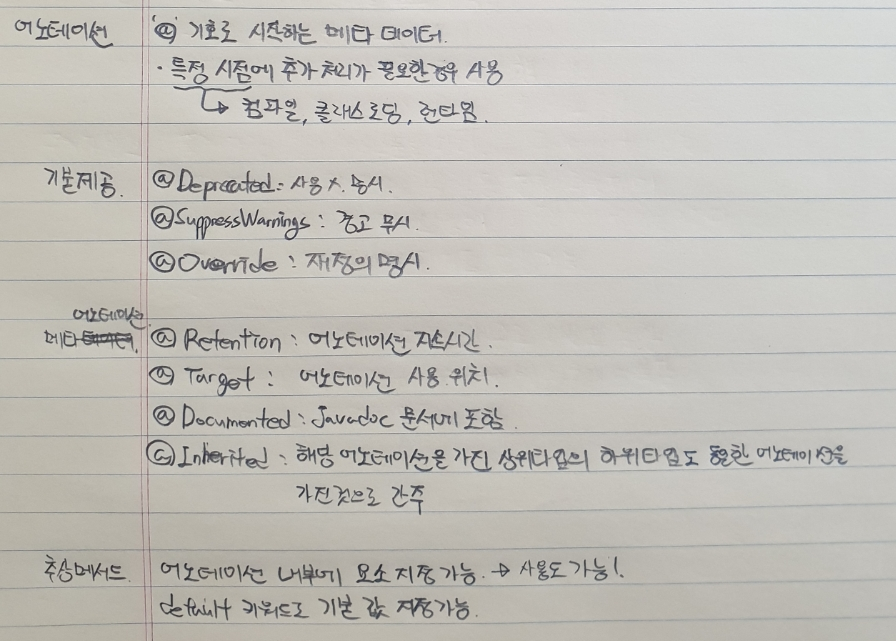 어노테이션 '@' 기호로 시작하는 메타 데이터.
· 특정 시점에 추가 처리가 필요한 경우 사용
↳ 컴파일, 클래스로딩, 런타임.
기본제공. @Deprecated : 사용 X. 명시.
@SuppressWarnings : 경고 무시.
@Override : 재정의 명시.
어노테이션
메타데이터. @ Retention : 어노테이션 지속시간.
@ Target : 어노테이션 사용 위치.
@ Documented : Javadoc 문서에 포함.
@Inherited : 해당 어노테이션을 가진 상위타입의 하위타입도 동일한 어노테이션을
가진것으로 간주
추상메서드. 어노테이션 내부에 요소 지정가능. → 사용도 가능!.
default 키워드로 기본 값 지정가능.